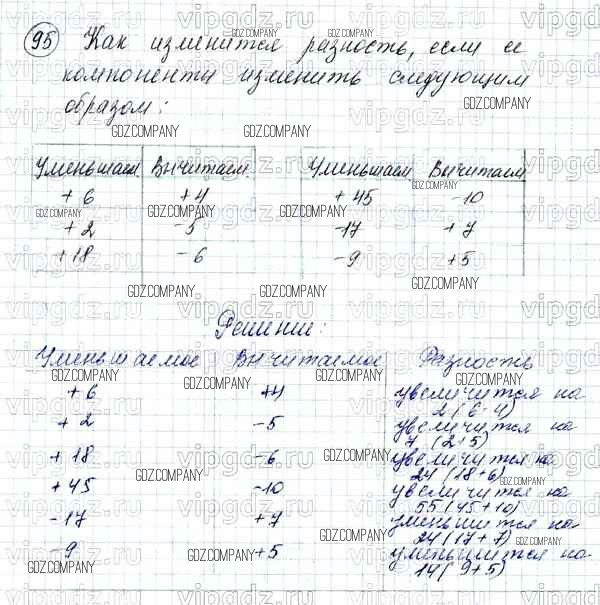 95 Как изменится разность, если ее
компоненты изменить следующим
образом:
Уменьшаем. Вычитаем. Уменьшаем. Вычитаем.
+6 +4 +45 -10
+2 -5 -17 +7
+18 -6 -9 +5
Решение:
Уменьшаемое Вычитаемое Разность
+6 +4 увеличится на
2 (6-4)
+2 -5 увеличится на
7 (2+5)
+18 -6 увеличится на
24 (18+6)
+45 -10 увеличится на
55 (45+10)
-17 +7 уменьшится на
24 (17+7)
-9 +5 уменьшится на
14 (9+5)